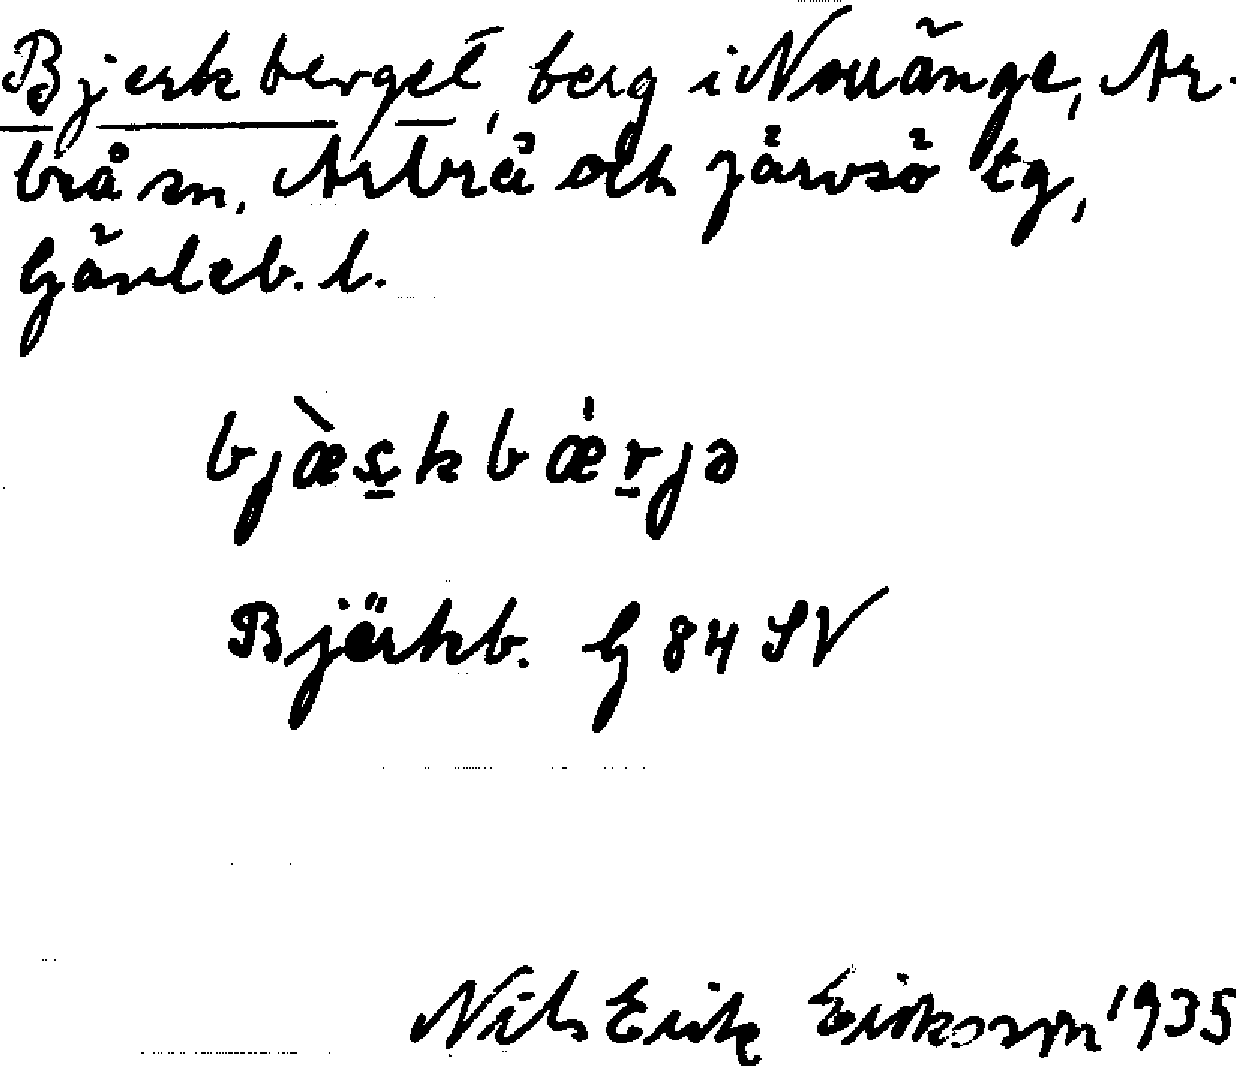 Bjerkberget, berg i Norränge, Ar-
brå sn, Arbrå och Järvsö tg,
Gävleb. l.
bjæ̀s̠kbǽr̠jə
Bjärkb. G 84 SV
Nils Erik Eriksson 1935